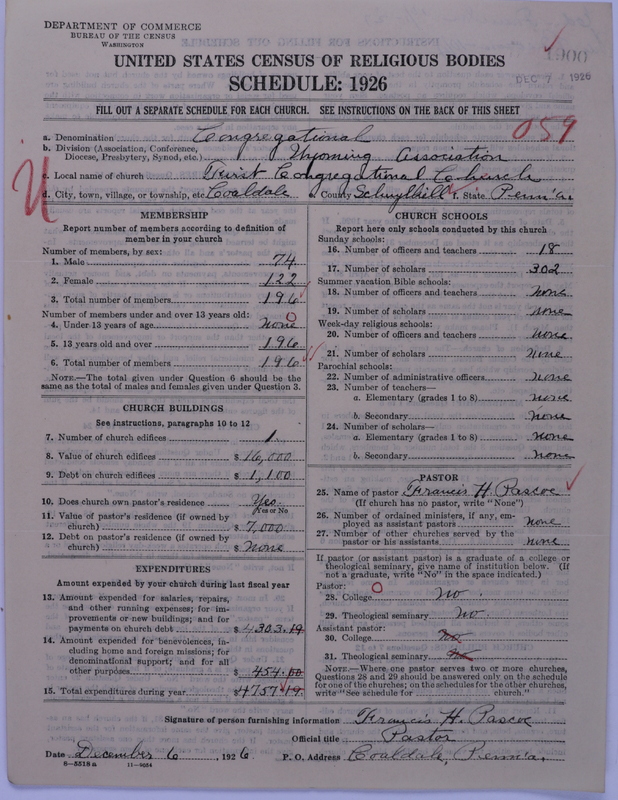 DEPARTMENT OF COMMERCE
BUREAU OF THE CENSUS
WASHINGTON
DEC 7 1926
UNITED STATES CENSUS OF RELIGIOUS BODIES
SCHEDULE: 1926
FILL OUT A SEPARATE SCHEDULE FOR EACH CHURCH. SEE INSTRUCTIONS ON THE BACK OF THIS SHEET
059
a. Denomination Congregational
b. Division (Association, Conference,
Diocese, Presbytery, Synod, etc.) Wyoming Association
c. Local name of church First Congregational Church
d. City, town, village, or township, etc. Coaldale e. County Schuylkill f. State Penn'a.
MEMBERSHIP
Report number of members according to definition of
member in your church
Number of members, by sex:
1. Male 74
2. Female 122
3. Total number of members 196
Number of members under and over 13 years old:
4. Under 13 years of age None
5. 13 years old and over 196
6. Total number of members 196
NOTE.—The total given under Question 6 should be
same as the total of males and females given under Question 3.
CHURCH BUILDINGS
See instructions, paragraphs 10 to 12
7. Number of church edifices 1
8. Value of church edifices $ 16,000
9. Debt on church edifices $ 1,100
10. Does church own pastor's residence Yes
Yes or No
11. Value of pastor's residence (if owned by
church) $ 7,000
12. Debt on pastor's residence (if owned by
church) $ None
EXPENDITURES
Amount expended by your church during last fiscal year
13. Amount expended for salaries, repairs,
and other running expenses; for im-
provements or new buildings; and for
payments on church debt $ 4303.19
14. Amount expended for benevolences, in-
cluding home and foreign missions; for
denominational support; and for all
other purposes $ 454.00
15. Total expenditures during year $ 4757.19
CHURCH SCHOOLS
Report here only schools conducted by this church
Sunday schools:
16. Number of officers and teachers 18
17. Number of scholars 302
Summer vacation Bible schools:
18. Number of officers and teachers None
19. Number of scholars none
Week-day religious schools:
20. Number of officers and teachers None
21. Number of scholars None
Parochial schools:
22. Number of administrative officers None
23. Number of teachers—
a. Elementary (grades 1 to 8) None
b. Secondary None
24. Number of scholars—
a. Elementary (grades 1 to 8) None
b. Secondary None
PASTOR
25. Name of pastor Francis H. Pascoe
(If church has no pastor, write "None")
26. Number of ordained ministers, if any, em-
ployed as assistant pastors None
27. Number of other churches served by the
pastor or his assistants None
If pastor (or assistant pastor) is a graduate of a college or
theological seminary, give name of institution below. (If
not a graduate, write "No" in the space indicated.)
Pastor:
28. College No.
29. Theological seminary No.
Assistant pastor:
30. College No
31. Theological seminary No
NOTE.—Where one pastor serves two or more churches,
Questions 28 and 29 should be answered only on the schedule
for one of the churches; on the schedules for the other churches,
write "See schedule for church."
Signature of person furnishing information Francis H. Pascoe
Official title Pastor
Date December 6, 1926 P. O. Address Coaldale, Penn'a.
8-5518a 11-9054